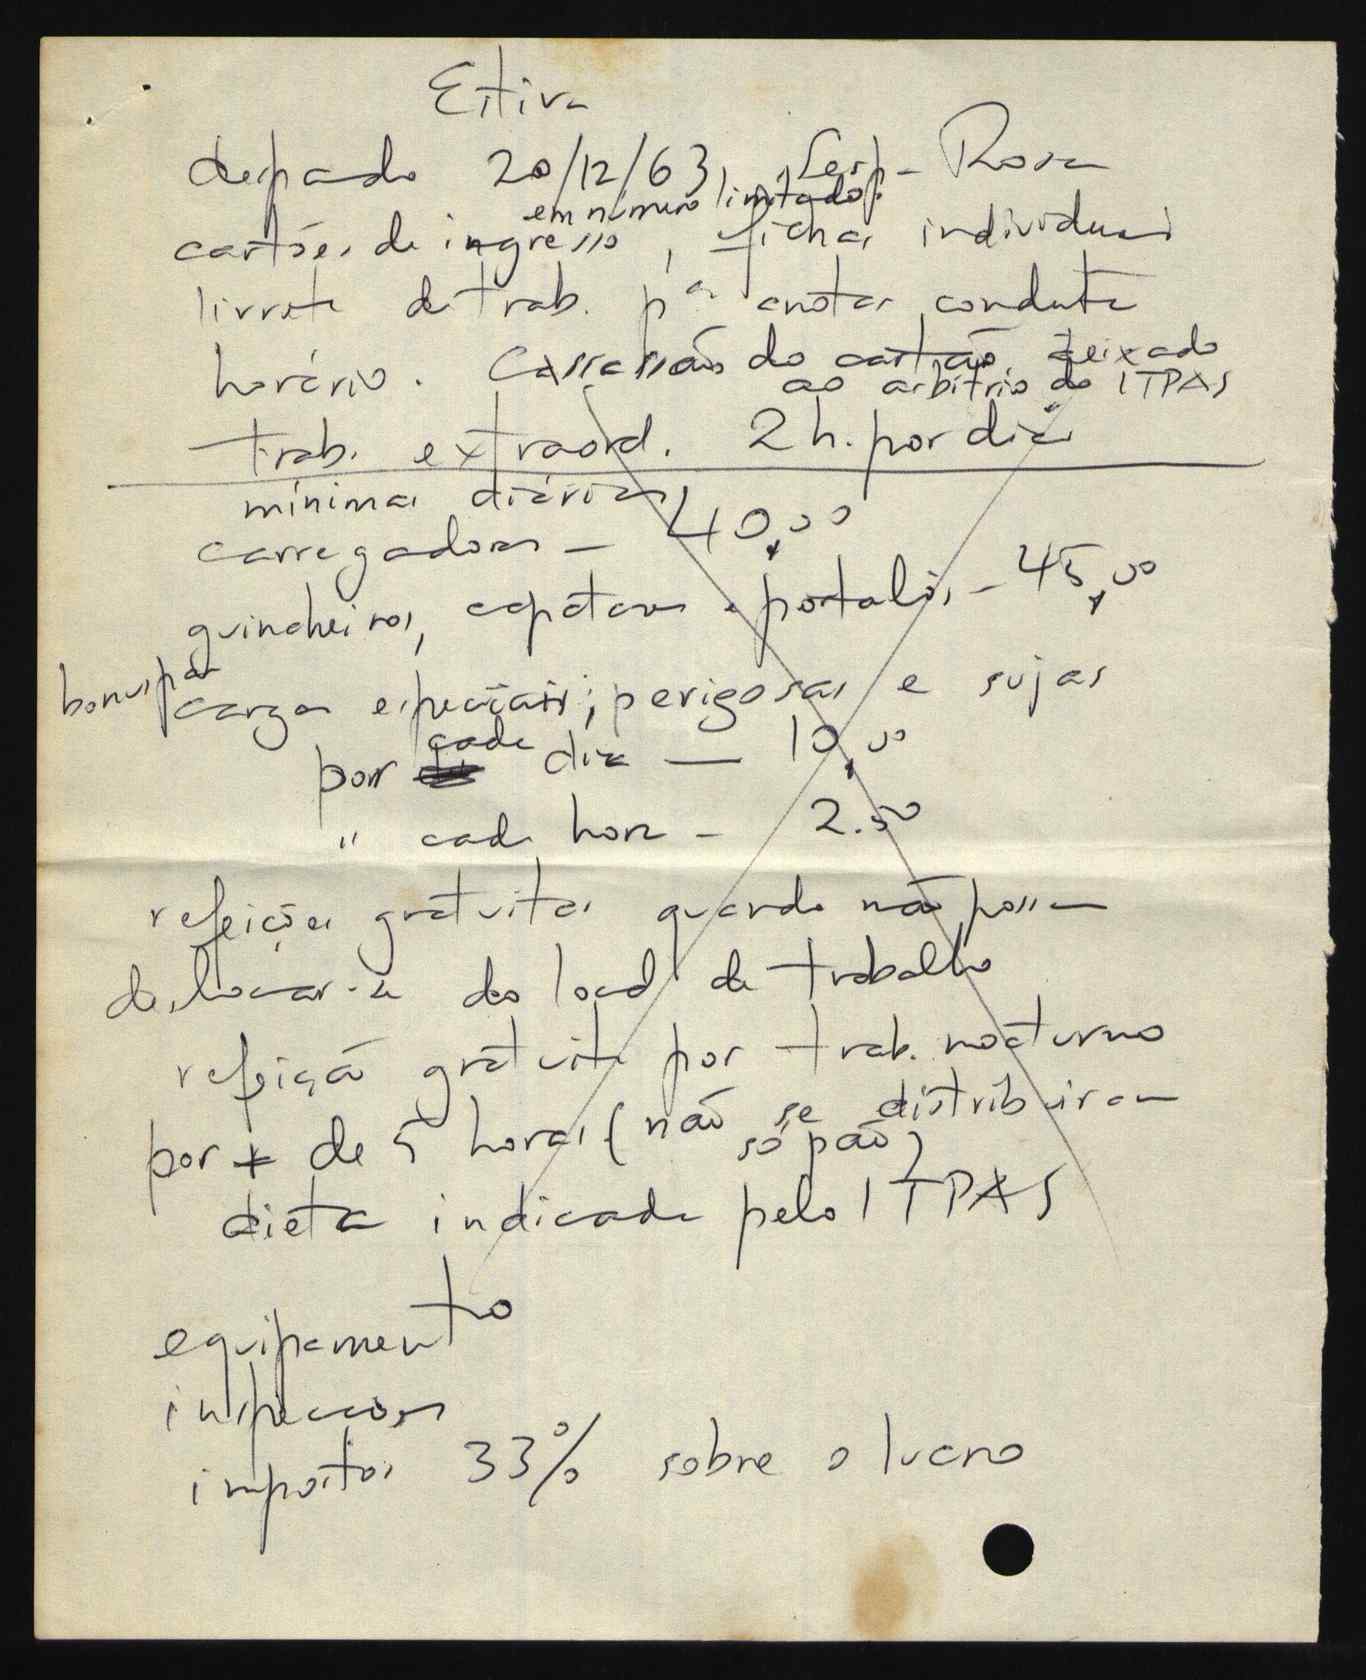 Estiva
despacho 20/12/63, Lesp- Rosa
em número limitado
cartões de ingresso, fichas individuais
livrete de trab. pª anotar conduta
horário. Cassassão do cartão deixado
ao arbítrio do ITPAS
trab. extraord. 2 h. por dia
mínimas diárias
carregadores - 40,00
guincheiros, capatazes e portalós, - 45,00
bonus par
cargas especiais; perigosas e sujas
por cada dia — 10,00
" cada hora - 2.50
refeições gratuitas quando não possam
deslocar-se do local de trabalho
refeição gratuita por trab. nocturno
por + de 5 horas (não se distribuiram
só pão)
dieta indicada pelo ITPAS
equipamento
inspecções
impostos 33% sobre o lucro